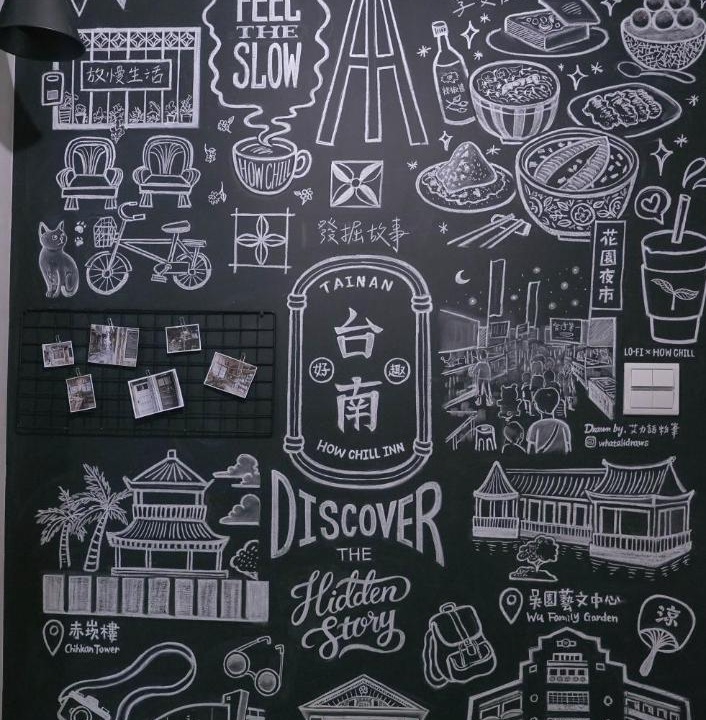 FEEL
THE
SLOW
放慢生活
HOW CHILL
發掘故事
花園夜市
TAINAN
台南
好趣
HOW CHILL INN
LO-FI × HOW CHILL
whatalidraws
DISCOVER
THE
Hidden
Story
赤崁樓
Chihkan Tower
吳園藝文中心
Wu Family Garden
涼